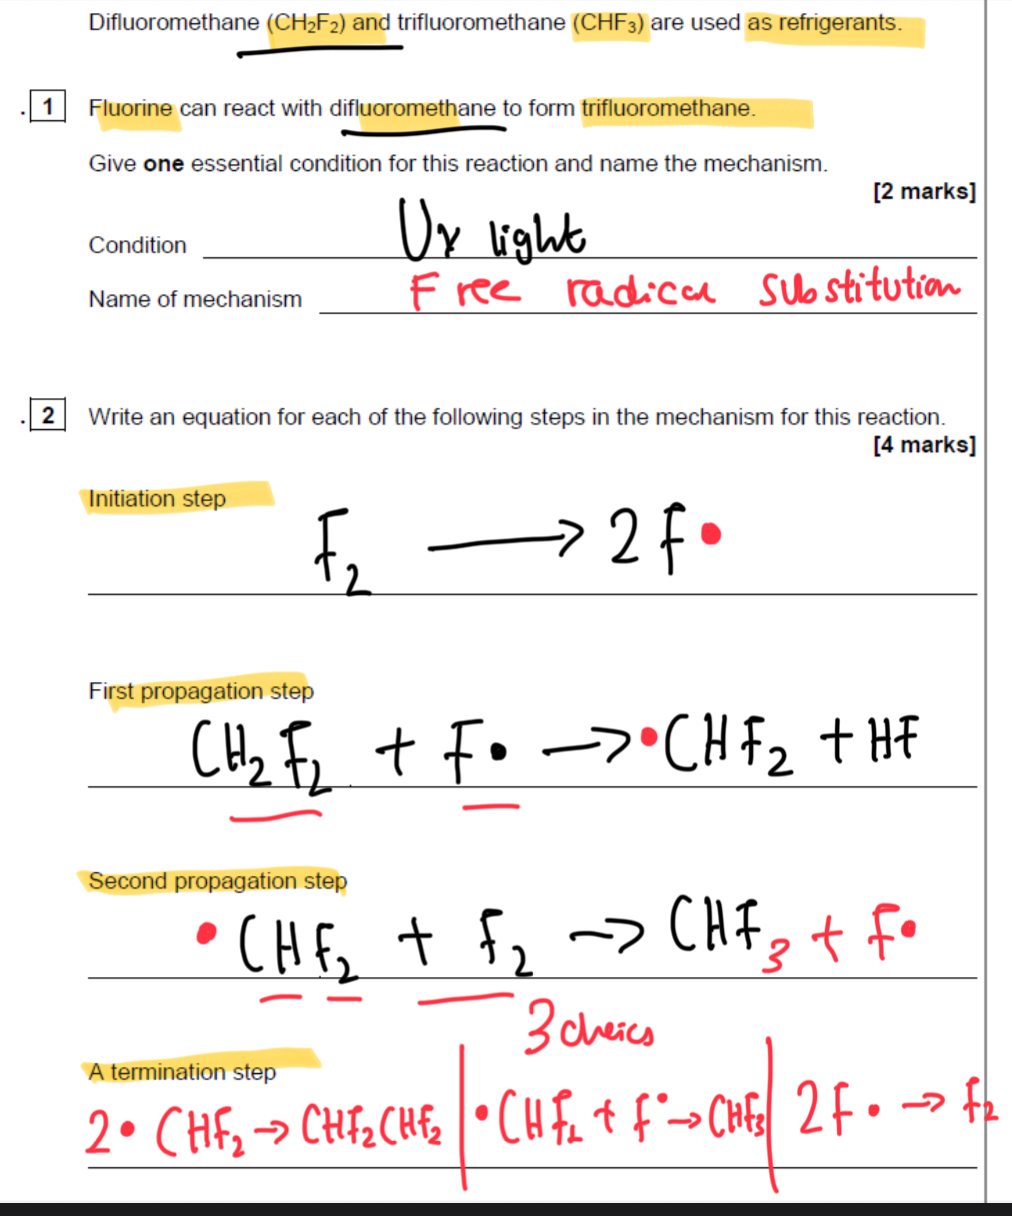 Difluoromethane (CH₂F₂) and trifluoromethane (CHF₃) are used as refrigerants.
. 1 Fluorine can react with difluoromethane to form trifluoromethane.
Give one essential condition for this reaction and name the mechanism.
[2 marks]
Condition UV light
Name of mechanism Free radical substitution
. 2 Write an equation for each of the following steps in the mechanism for this reaction.
[4 marks]
Initiation step
F₂ → 2F•
First propagation step
CH₂F₂ + F• → •CHF₂ + HF
Second propagation step
•CHF₂ + F₂ → CHF₃ + F•
3
A termination step
2•CHF₂ → CHF₂CHF₂ | •CHF₂ + F• → CHF₃ | 2F• → F₂